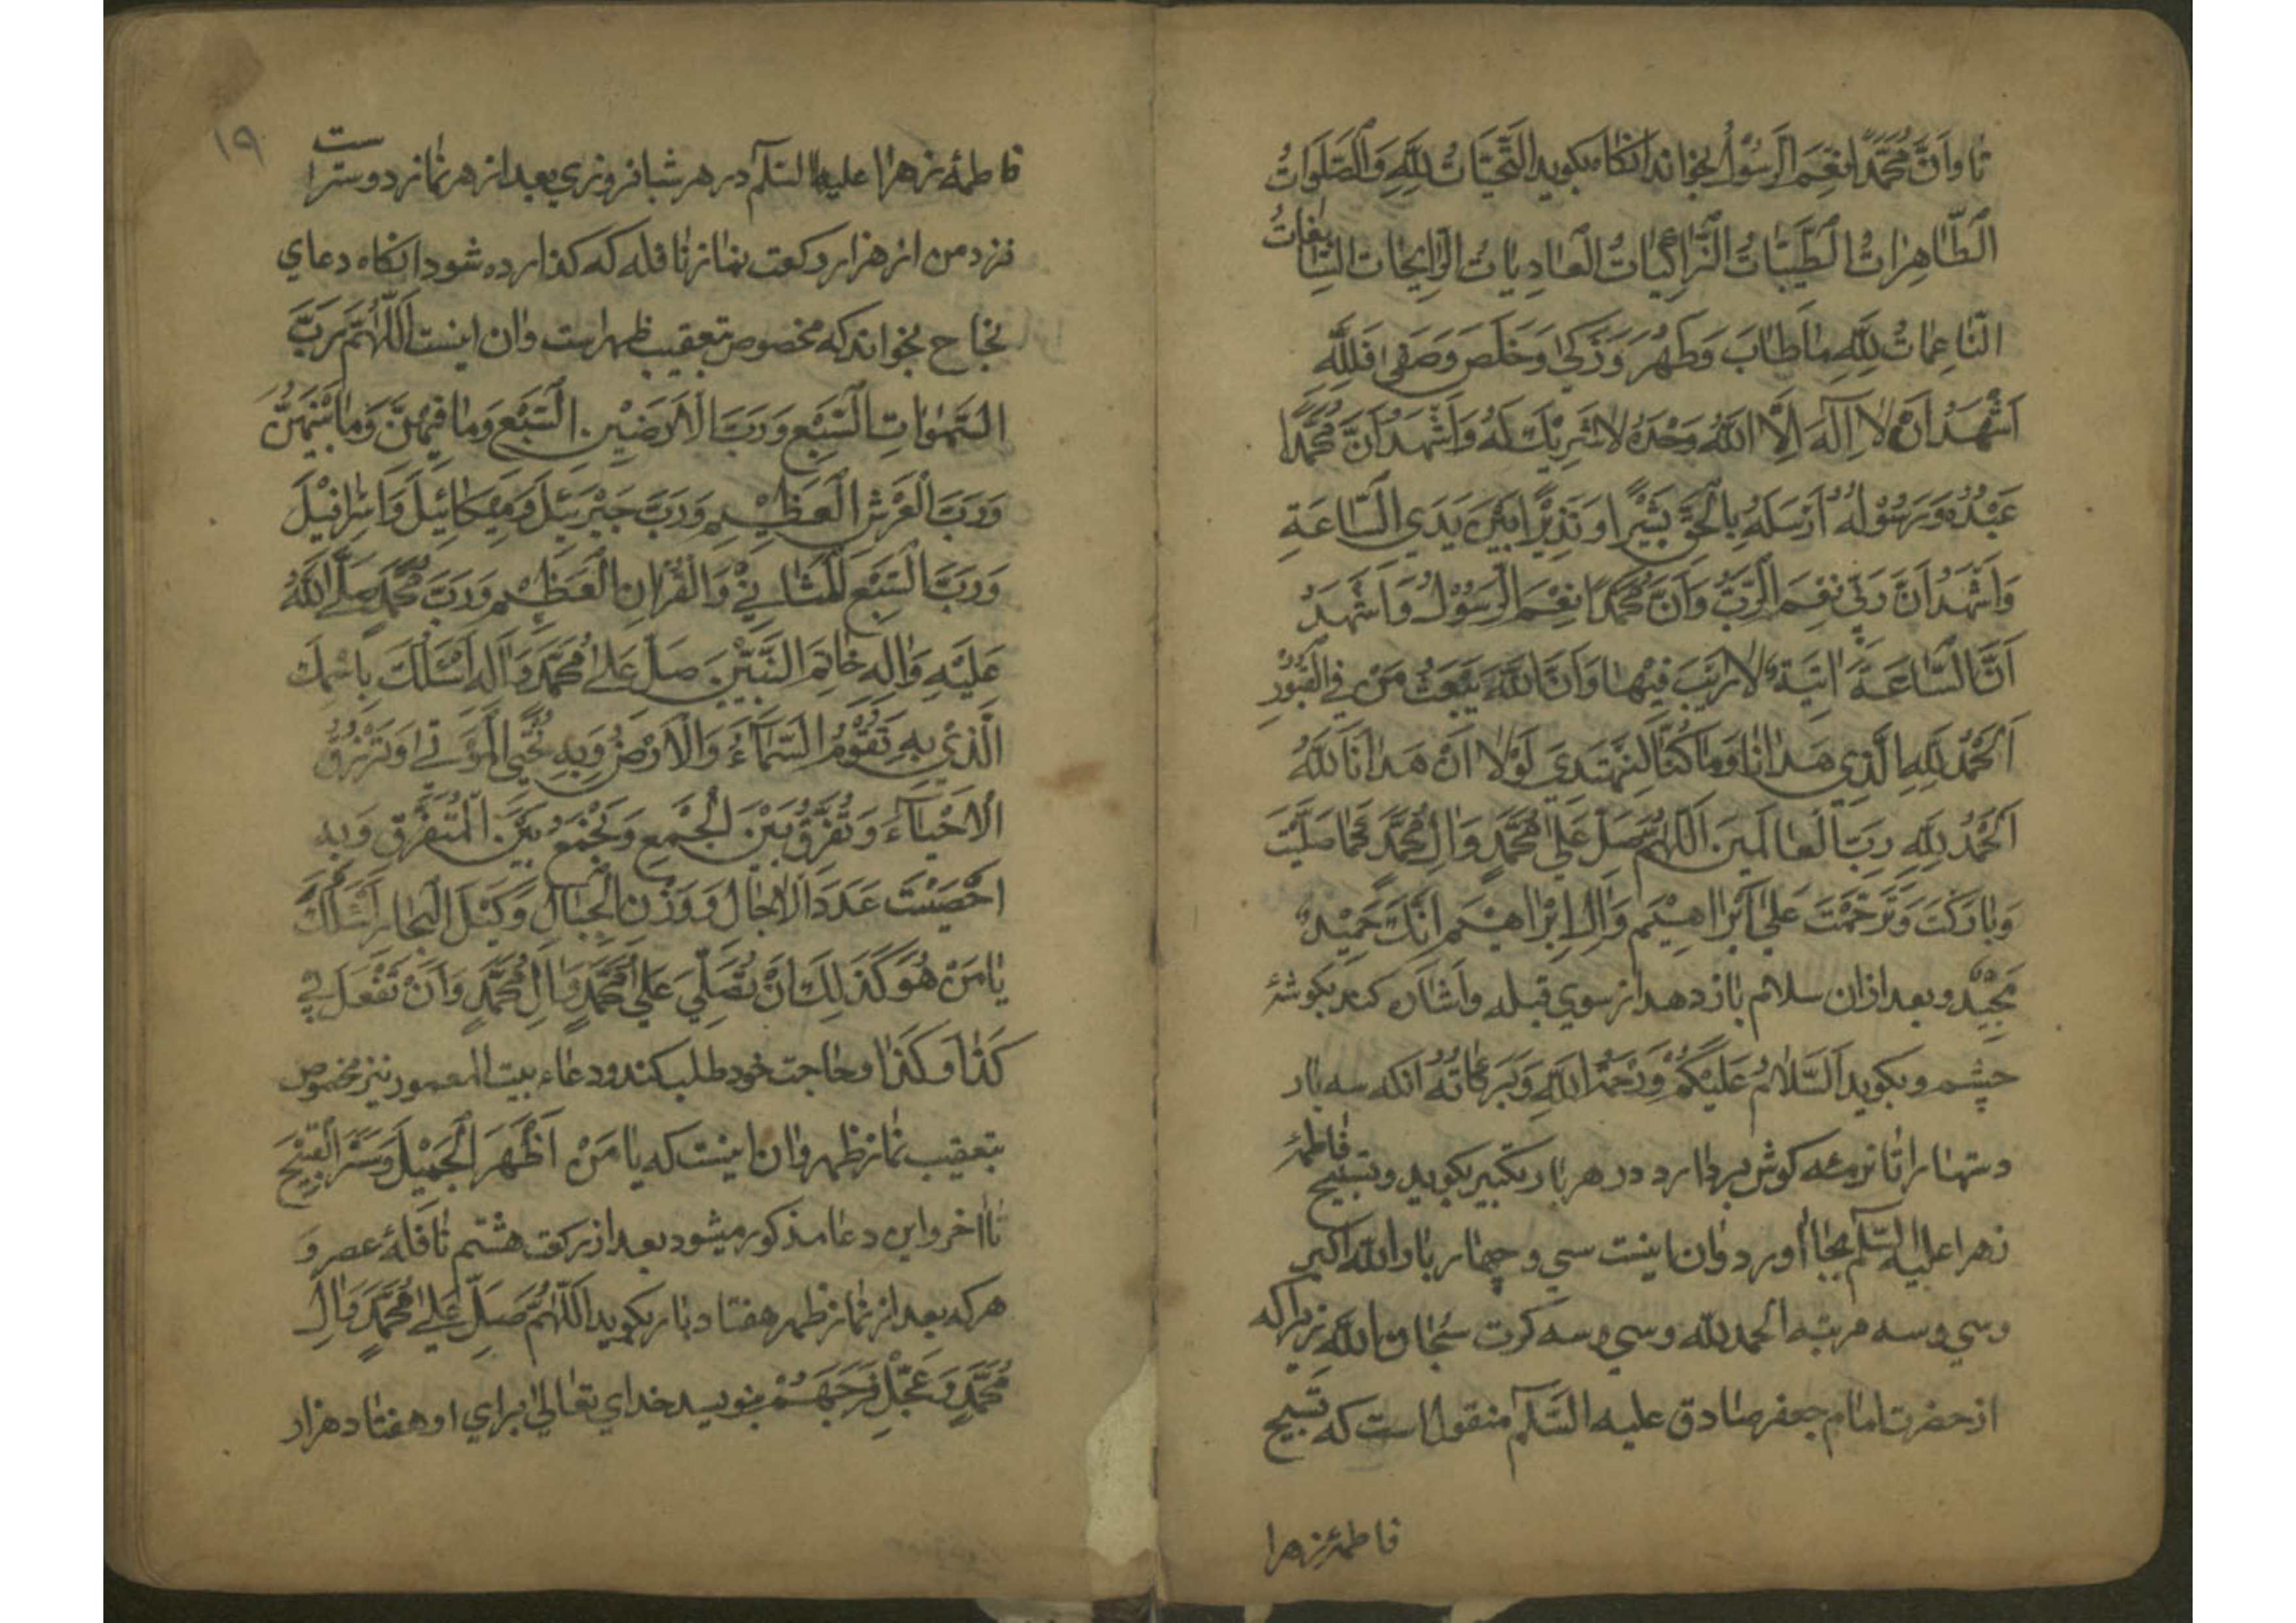 تا وَاَنَّ مُحَمَّدًا نِعْمَ الرَّسُوْلُ بخواند انكاه بكويد اَلتَّحِيَّاتُ لِلّٰهِ وَالصَّلَوَاتُ
الطَّاهِرَاتُ الطَّيِّبَاتُ الزَّاكِيَاتُ الْغَادِيَاتُ الرَّائِحَاتُ السَّابِغَاتُ
النَّاعِمَاتُ لِلّٰهِ مَا طَابَ وَطَهُرَ وَزَكٰى وَخَلَصَ وَصَفٰى فَلِلّٰهِ
اَشْهَدُ اَنْ لَا اِلٰهَ اِلَّا اللّٰهُ وَحْدَهُ لَا شَرِيْكَ لَهُ وَاَشْهَدُ اَنَّ مُحَمَّدًا
عَبْدُهُ وَرَسُوْلُهُ اَرْسَلَهُ بِالْحَقِّ بَشِيْرًا وَنَذِيْرًا بَيْنَ يَدَيِ السَّاعَةِ
وَاَشْهَدُ اَنَّ رَبِّى نِعْمَ الرَّبُّ وَاَنَّ مُحَمَّدًا نِعْمَ الرَّسُوْلُ وَاَشْهَدُ
اَنَّ السَّاعَةَ اٰتِيَةٌ لَا رَيْبَ فِيْهَا وَاَنَّ اللّٰهَ يَبْعَثُ مَنْ فِي الْقُبُوْرِ
اَلْحَمْدُ لِلّٰهِ الَّذِي هَدَانَا وَمَا كُنَّا لِنَهْتَدِيَ لَوْلَا اَنْ هَدَانَا اللّٰهُ
اَلْحَمْدُ لِلّٰهِ رَبِّ الْعَالَمِيْنَ اَللّٰهُمَّ صَلِّ عَلٰى مُحَمَّدٍ وَاٰلِ مُحَمَّدٍ كَمَا صَلَّيْتَ
وَبَارَكْتَ وَتَرَحَّمْتَ عَلٰى اِبْرَاهِيْمَ وَاٰلِ اِبْرَاهِيْمَ اِنَّكَ حَمِيْدٌ
مَجِيْدٌ وبعد ازان سلام باز دهد از سوي قبله واشاره كند بكوشهٔ
چشم وبكويد اَلسَّلَامُ عَلَيْكُمْ وَرَحْمَةُ اللّٰهِ وَبَرَكَاتُهُ انكه سه بار
دستها را تا نرمه كوش بردارد در هر بار تكبير بكويد وتسبيح فاطمهٔ
زهرا عليها السّلٰم بجا اورد وان اينست سي وچهار بار الله اكبر
وسي وسه مرتبه الحمد لله وسي وسه كرت سُبْحَان الله زيرا كه
از حضرت امام جعفر صادق عليه السّلٰم منقول است كه تسبيح
فاطمهٔ زهرا
١٩
فاطمهٔ زهرا عليها السّلٰم در هر شبانروزي بعد از هر نماز دوستر است
نزد من از هزار ركعت نماز نافله كه كذارده شود انكاه دعاي
نجاح بخواند كه مخصوص تعقيب ظهر است وان اينست اَللّٰهُمَّ رَبَّ
السَّمٰوَاتِ السَّبْعِ وَرَبَّ الْاَرَضِيْنَ السَّبْعِ وَمَا فِيْهِنَّ وَمَا بَيْنَهُنَّ
وَرَبَّ الْعَرْشِ الْعَظِيْمِ وَرَبَّ جَبْرَئِيْلَ وَمِيْكَائِيْلَ وَاِسْرَافِيْلَ
وَرَبَّ السَّبْعِ الْمَثَانِيْ وَالْقُرْاٰنِ الْعَظِيْمِ وَرَبَّ مُحَمَّدٍ صَلَّى اللّٰهُ
عَلَيْهِ وَاٰلِهِ خَاتَمِ النَّبِيِّيْنَ صَلِّ عَلٰى مُحَمَّدٍ وَاٰلِهِ اَسْئَلُكَ بِاسْمِكَ
الَّذِيْ بِهِ تَقُوْمُ السَّمَاءُ وَالْاَرْضُ وَبِهِ تُحْيِي الْمَوْتٰى وَتَرْزُقُ
الْاَحْيَاءَ وَتُفَرِّقُ بَيْنَ الْجَمْعِ وَتَجْمَعُ بَيْنَ الْمُتَفَرِّقِ وَبِهِ
اَحْصَيْتَ عَدَدَ الْاٰجَالِ وَوَزْنَ الْجِبَالِ وَكَيْلَ الْبِحَارِ اَسْئَلُكَ
يَا مَنْ هُوَ كَذٰلِكَ اَنْ تُصَلِّيَ عَلٰى مُحَمَّدٍ وَاٰلِ مُحَمَّدٍ وَاَنْ تَفْعَلَ بِي
كَذَا وَكَذَا وحاجت خود طلب كند ودعاء بيت المعمور نيز مخصوص
بتعقيب نماز ظهر وان اينست كه يَا مَنْ اَظْهَرَ الْجَمِيْلَ وَسَتَرَ الْقَبِيْحَ
تا اخر واين دعا مذكور ميشود بعد از ركعت هشتم نافلهٔ عصر و
هر كه بعد از نماز ظهر هفتاد بار بكويد اَللّٰهُمَّ صَلِّ عَلٰى مُحَمَّدٍ وَاٰلِ
مُحَمَّدٍ وَعَجِّلْ فَرَجَهُمْ بنويسد خداي تعالٰى براي او هفتاد هزار